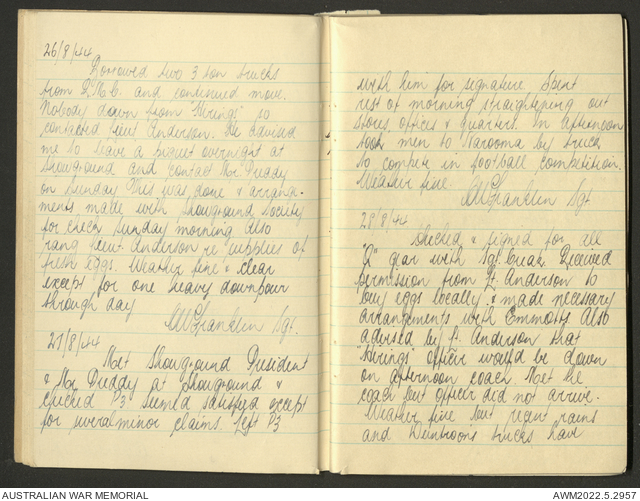 26/8/44
Borrowed two 3 ton trucks
from R.M.C. and continued move.
Nobody down from "Hirings" so
contacted Lieut Anderson. He advised
me to leave a piquet overnight at
Showground and contact Mr. Preddy
on Sunday This was done & arrange-
ments made with Showground Society
for check Sunday morning Also
rang Lieut Anderson re supplies of
fresh eggs. Weather fine & clear
except for one heavy downpour
through day
Franklin Sgt.
27/8/44
Met Showground President
& Mr Preddy at Showground &
checked P3 Seemed satisfied except
for several minor claims. Left P3
with him for signature Spent
rest of morning straightening out
stores, offices & quarters. In afternoon
took men to Narooma by truck
to compete in football competition.
Weather fine
Franklin Sgt
28/8/44
Checked & signed for all
"Q" gear with Sgt. Received
permission from Lt. Anderson to
buy eggs locally & made necessary
arrangements with Emmotts Also
advised by Lt. Anderson that
"Hirings" officer would be down
on afternoon coach Met the
coach but officer did not arrive.
Weather fine but recent rains
and trucks have
AUSTRALIAN WAR MEMORIAL
AWM2022.5.2957